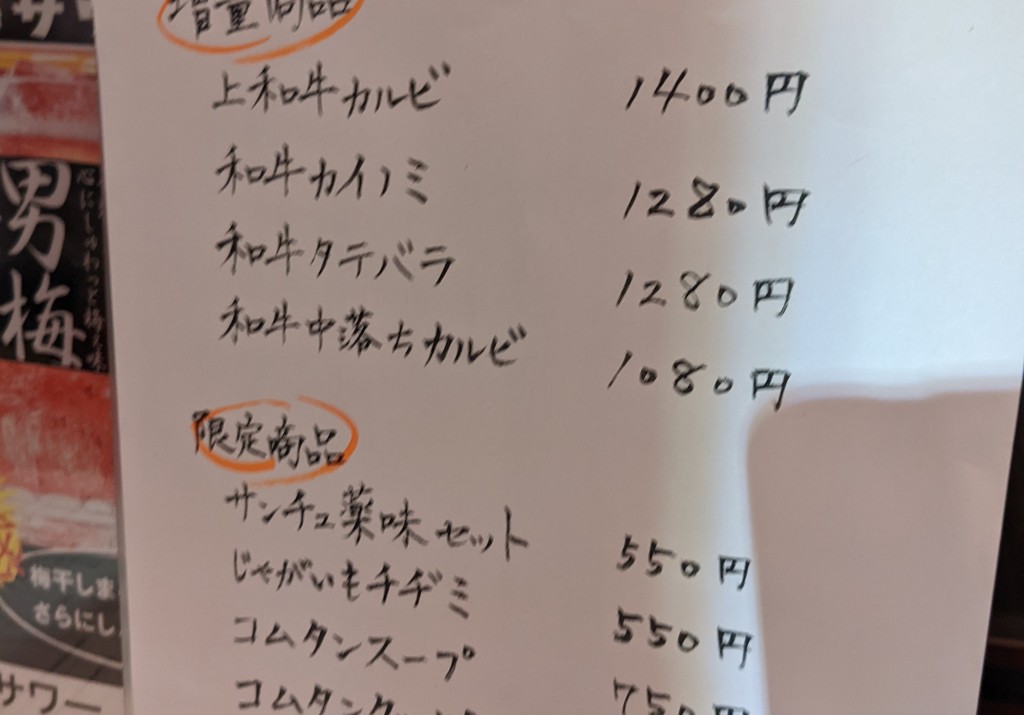 増量商品
上和牛カルビ 1400円
和牛カイノミ 1280円
和牛タテバラ 1280円
和牛中落ちカルビ 1080円
限定商品
サンチュ薬味セット 550円
じゃがいもチヂミ 550円
コムタンスープ 750円
コムタン
男梅
梅干しま
さらにし
サワー